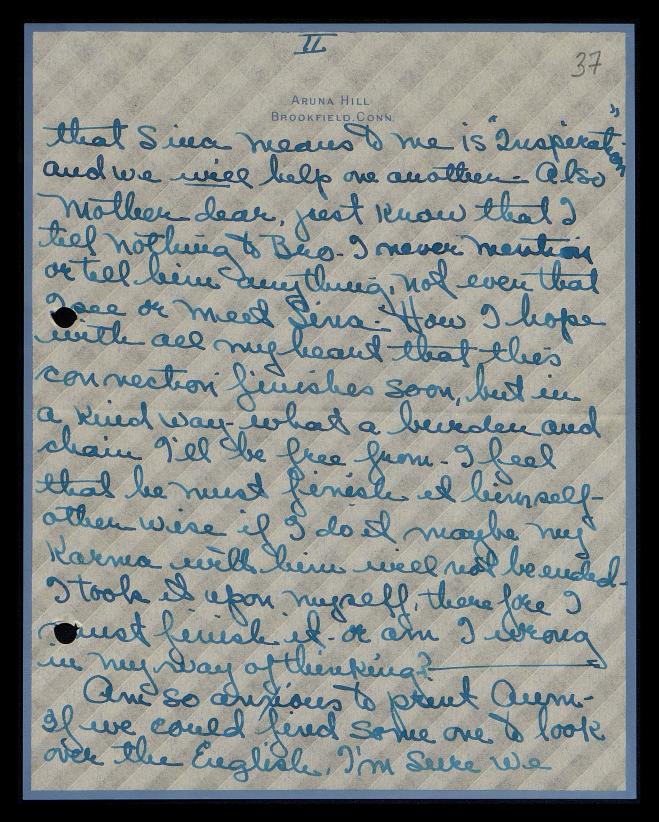 II
37
ARUNA HILL
BROOKFIELD, CONN.
that Sina means to me is "Inspiration"
and we will help one another - Also
Mother dear, just know that I
tell nothing to Bro - I never mention
or tell him anything, not even that
I see or meet Sina - How I hope
with all my heart that this
connection finishes soon, but in
a kind way - what a burden and
chain I'll be free from - I feel
that he must finish it himself -
otherwise if I do it maybe my
Karma with him will not be ended -
I took it upon myself, therefore I
must finish it - or am I wrong
in my way of thinking?
Am so anxious to print Aum -
If we could find some one to look
over the English, I'm sure we